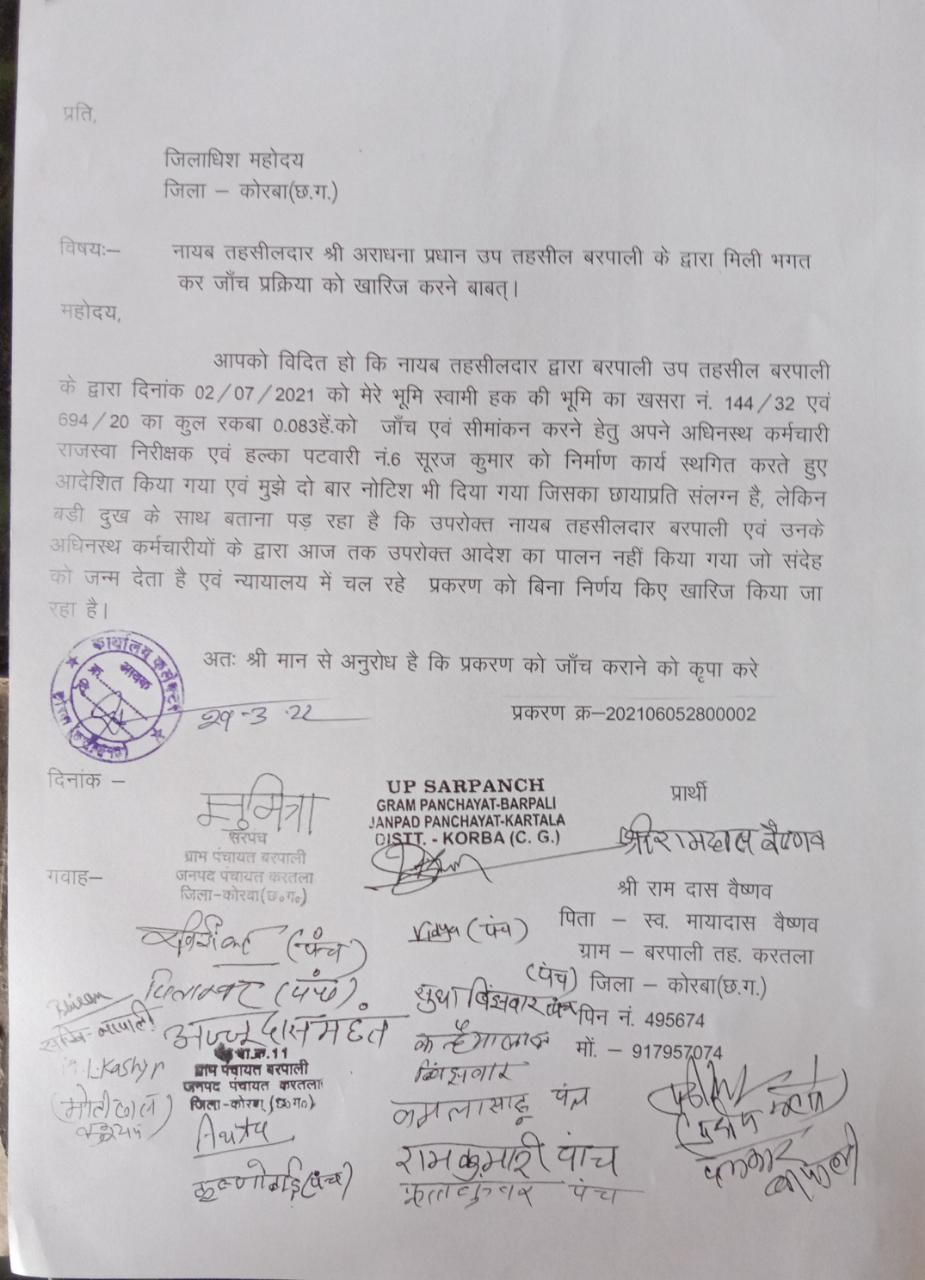 प्रति,
जिलाधिश महोदय
जिला – कोरबा(छ.ग.)
विषयः– नायब तहसीलदार श्री अराधना प्रधान उप तहसील बरपाली के द्वारा मिली भगत
कर जाँच प्रक्रिया को खारिज करने बाबत्।
महोदय,
आपको विदित हो कि नायब तहसीलदार द्वारा बरपाली उप तहसील बरपाली
के द्वारा दिनांक 02/07/2021 को मेरे भूमि स्वामी हक की भूमि का खसरा नं. 144/32 एवं
694/20 का कुल रकबा 0.083हें.को जाँच एवं सीमांकन करने हेतु अपने अधिनस्थ कर्मचारी
राजस्वा निरीक्षक एवं हल्का पटवारी नं.6 सूरज कुमार को निर्माण कार्य स्थगित करते हुए
आदेशित किया गया एवं मुझे दो बार नोटिश भी दिया गया जिसका छायाप्रति संलग्न है, लेकिन
बडी दुख के साथ बताना पड़ रहा है कि उपरोक्त नायब तहसीलदार बरपाली एवं उनके
अधिनस्थ कर्मचारीयों के द्वारा आज तक उपरोक्त आदेश का पालन नहीं किया गया जो संदेह
को जन्म देता है एवं न्यायालय में चल रहे प्रकरण को बिना निर्णय किए खारिज किया जा
रहा है।
अतः श्री मान से अनुरोध है कि प्रकरण को जाँच कराने को कृपा करे
कार्यालय कलेक्टर
29-3-22
प्रकरण क्र–202106052800002
दिनांक –
सुमित्रा
सरपंच
ग्राम पंचायत बरपाली
जनपद पंचायत करतला
जिला-कोरबा(छ०ग०)
UP SARPANCH
GRAM PANCHAYAT-BARPALI
JANPAD PANCHAYAT-KARTALA
DISTT. - KORBA (C. G.)
प्रार्थी
श्रीरामदास वैष्णव
श्री राम दास वैष्णव
पिता – स्व. मायादास वैष्णव
ग्राम – बरपाली तह. करतला
जिला – कोरबा(छ.ग.)
पिन नं. 495674
मों. – 917957074
गवाह–
(पंच)
Vidya (पंच)
पिताम्बर (पंच).
(पंच)
सुधा बिंझवार
अज्जू दास महंत
वा.क्र.11
ग्राम पंचायत बरपाली
जनपद पंचायत करतला
जिला-कोरबा (छ०ग०)
बिंझवार
Kashyp
(मोतीलाल
कमलासाहू पंच
रामकुमारी पांच
पंच
(पंच)